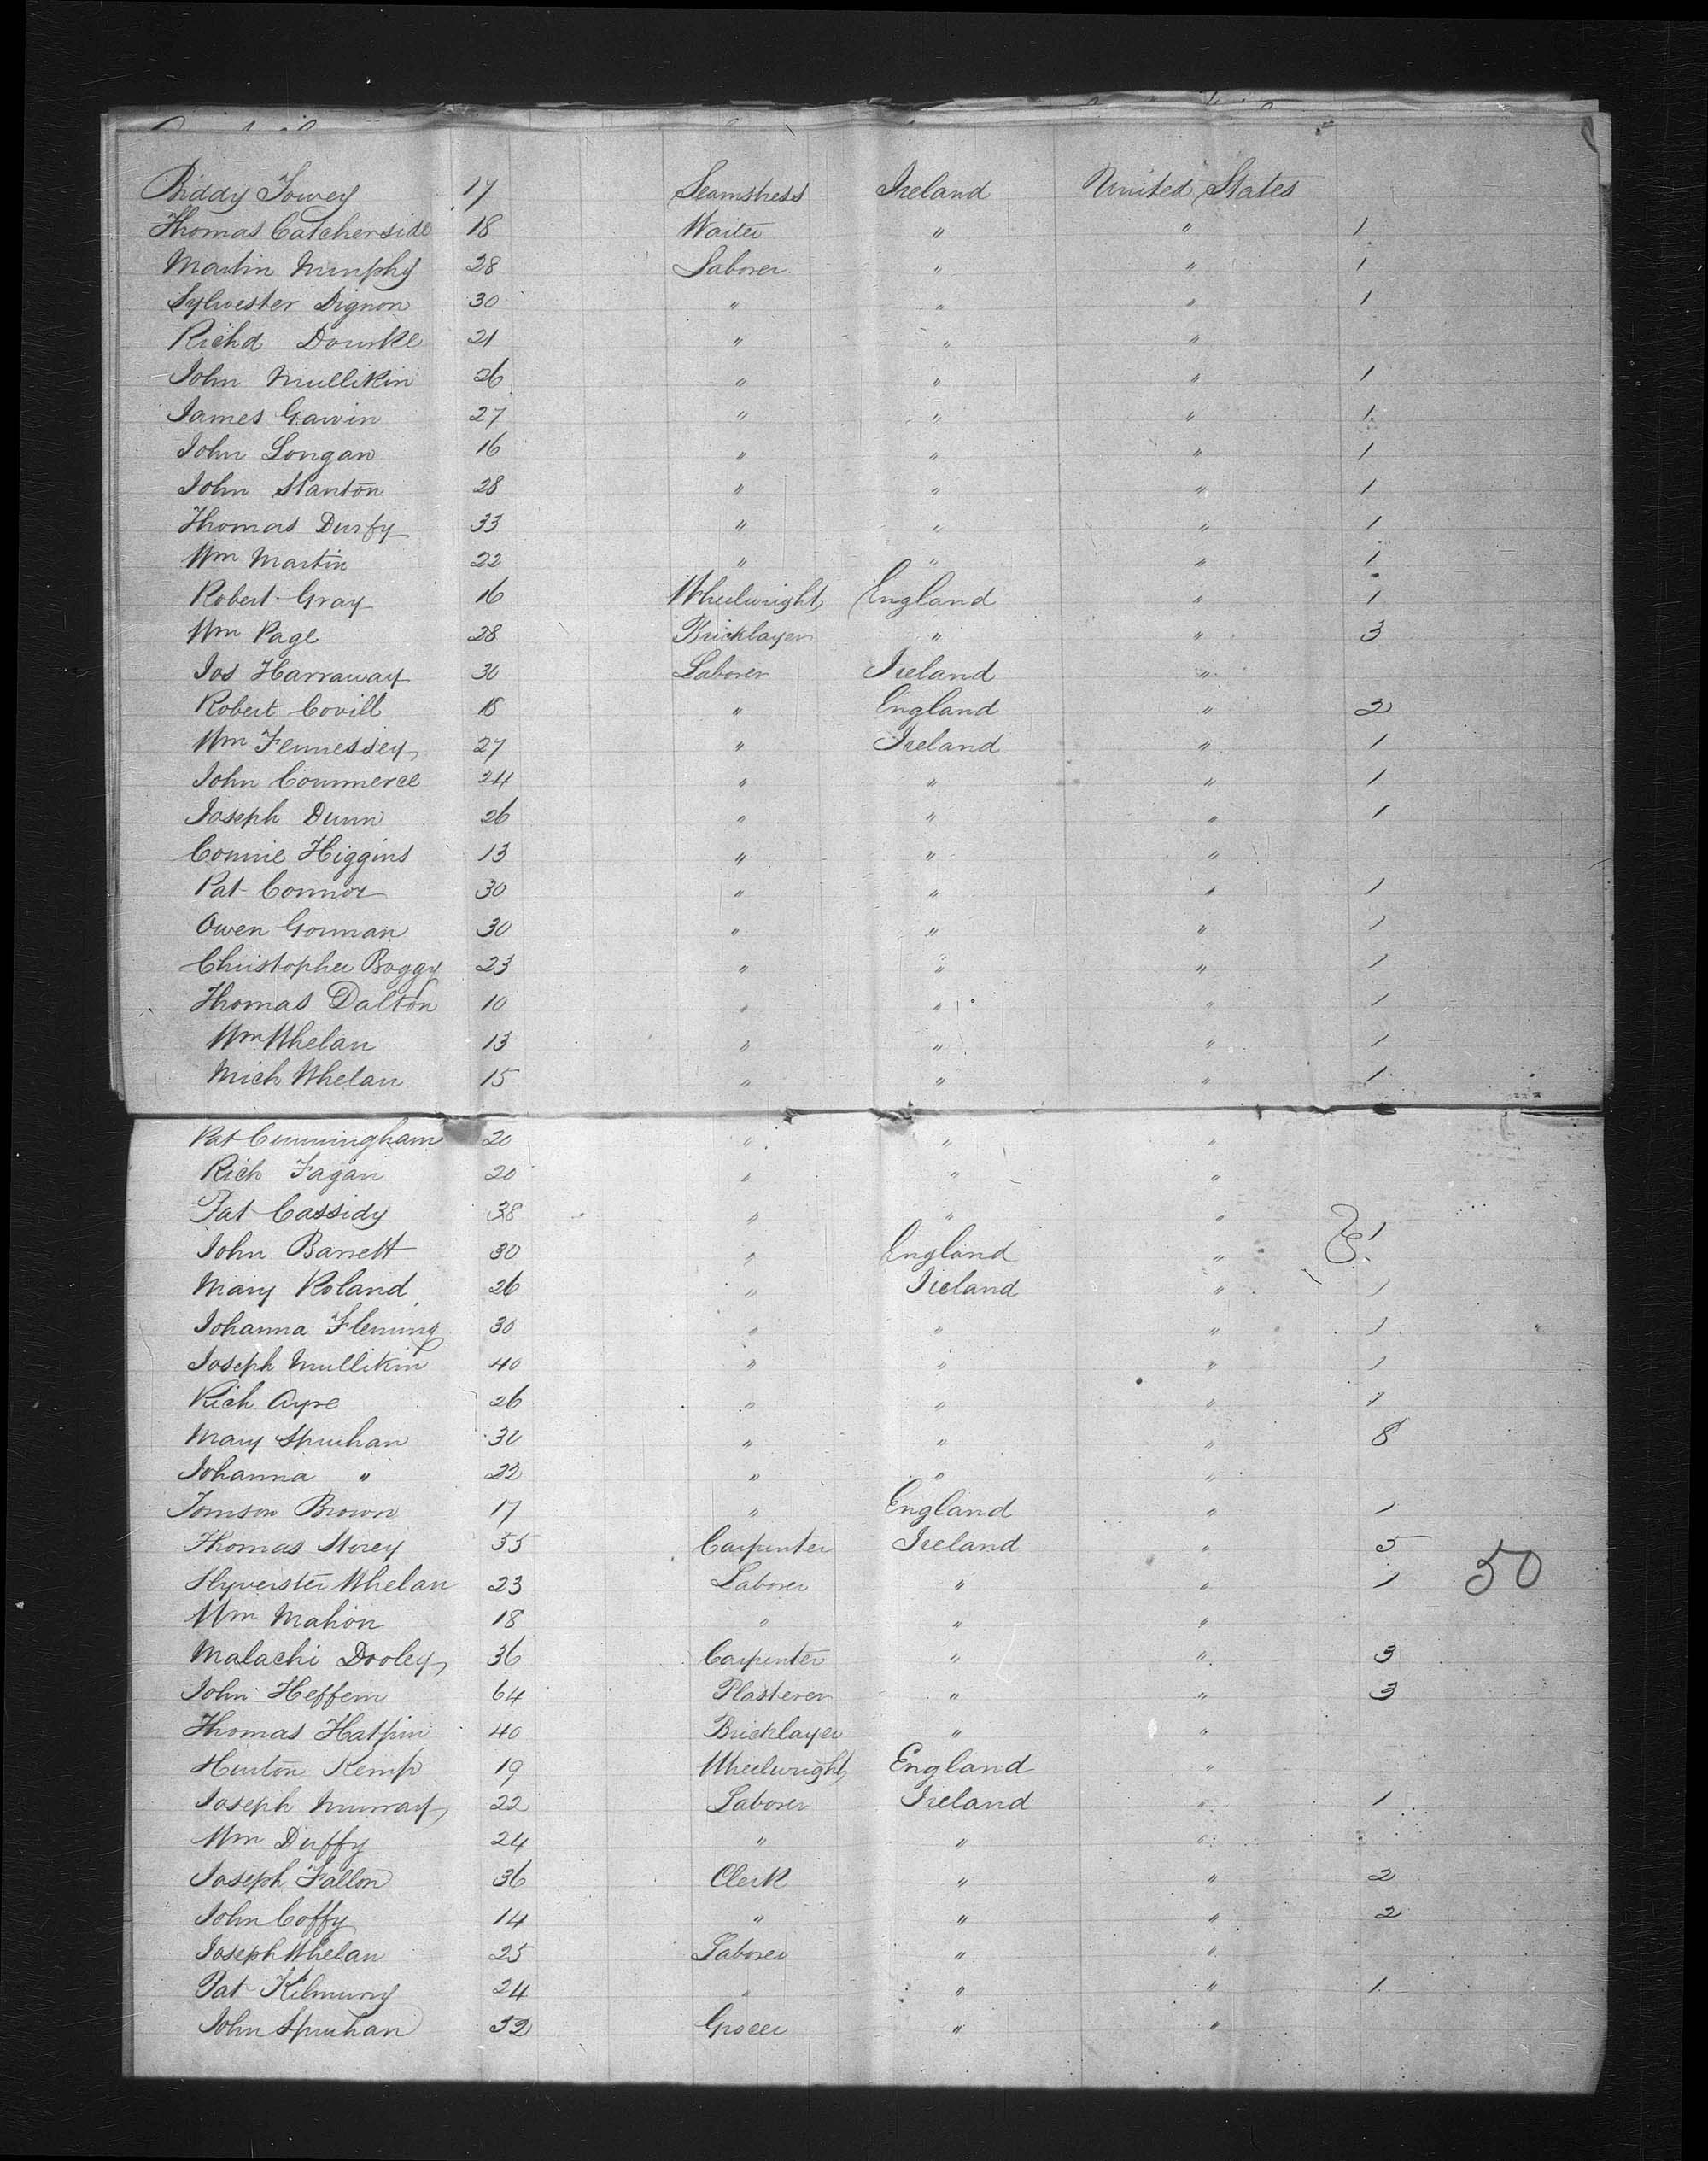 Biddy Towey 17 Seamstress Ireland United States
Thomas Catcherside 18 Waiter " " 1
Martin Murphy 28 Laborer " " 1
Sylvester Dignon 30 " " " 1
Richd Dourke 21 " " "
John Mullikin 26 " " " 1
James Gavin 27 " " " 1
John Longan 16 " " " 1
John Stanton 28 " " " 1
Thomas Durfy 33 " " " 1
Wm Martin 22 " " " 1
Robert Gray 16 Wheelwright England " 1
Wm Page 28 Bricklayer " " 3
Jos Harraway 30 Laborer Ireland "
Robert Covill 18 " England " 2
Wm Fennessey 27 " Ireland " 1
John Commerce 24 " " " 1
Joseph Dunn 26 " " " 1
Connie Higgins 13 " " "
Pat Connor 30 " " " 1
Owen Gorman 30 " " " 1
Christopher Boggy 23 " " " 1
Thomas Dalton 10 " " " 1
Wm Whelan 13 " " " 1
Mich Whelan 15 " " " 1
Pat Cunningham 20 " " "
Rich Fagan 20 " " "
Pat Cassidy 38 " " "
John Barrett 30 " England " 1
Mary Roland 26 " Ireland " 1
Johanna Fleming 30 " " " 1
Joseph Mullikin 40 " " " 1
Rich Ayre 26 " " " 1
Mary Spruhan 30 " " " 8
Johanna " 22 " " "
Tomson Brown 17 " England " 1
Thomas Storey 55 Carpenter Ireland " 5
Slyverster Whelan 23 Laborer " " 1 50
Wm Mahon 18 " " "
Malachi Dooley 36 Carpenter " " 3
John Heffern 64 Plasterer " " 3
Thomas Halpin 40 Bricklayer " "
Hinton Kemp 19 Wheelwright England "
Joseph Murray 22 Laborer Ireland " 1
Wm Duffy 24 " " "
Joseph Fallon 36 Clerk " " 2
John Coffy 14 " " " 2
Joseph Whelan 25 Laborer " "
Pat Kilmurry 24 " " " 1
John Spruhan 32 Grocer " "